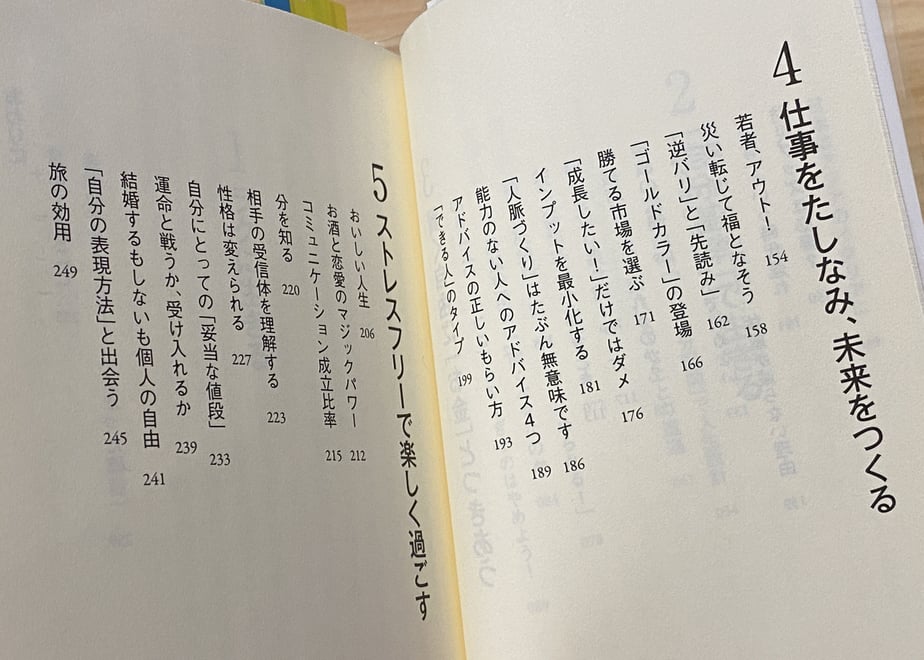 4 仕事をたしなみ、未来をつくる
若者、アウト！ 154
災い転じて福となそう 158
「逆バリ」と「先読み」 162
「ゴールドカラー」の登場 166
勝てる市場を選ぶ 171
「成長したい！」だけではダメ 176
インプットを最小化する 181
「人脈づくり」はたぶん無意味です 186
能力のない人へのアドバイス4つ 189
アドバイスの正しいもらい方 193
「できる人」のタイプ 199
5 ストレスフリーで楽しく過ごす
おいしい人生 206
お酒と恋愛のマジックパワー 212
コミュニケーション成立比率 215
分を知る 220
相手の受信体を理解する 223
性格は変えられる 227
自分にとっての「妥当な値段」 233
運命と戦うか、受け入れるか 239
結婚するもしないも個人の自由 241
「自分の表現方法」と出会う 245
旅の効用 249